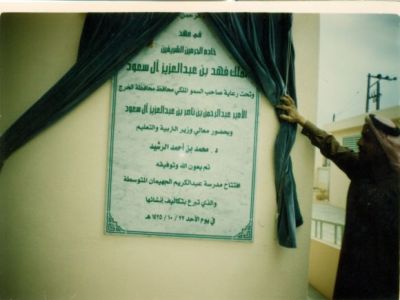 في عهد
خادم الحرمين الشريفين
الملك فهد بن عبدالعزيز آل سعود
وتحت رعاية صاحب السمو الملكي محافظ محافظة الخرج
الأمير عبدالرحمن بن ناصر بن عبدالعزيز آل سعود
وبحضور معالي وزير التربية والتعليم
د. محمد بن أحمد الرشيد
تم بعون الله وتوفيقه
افتتاح مدرسة عبدالكريم الجهيمان المتوسطة
والذي تبرع بتكاليف إنشائها
في يوم الأحد ٢٢ / ١٠ / ١٤٢٥ هـ